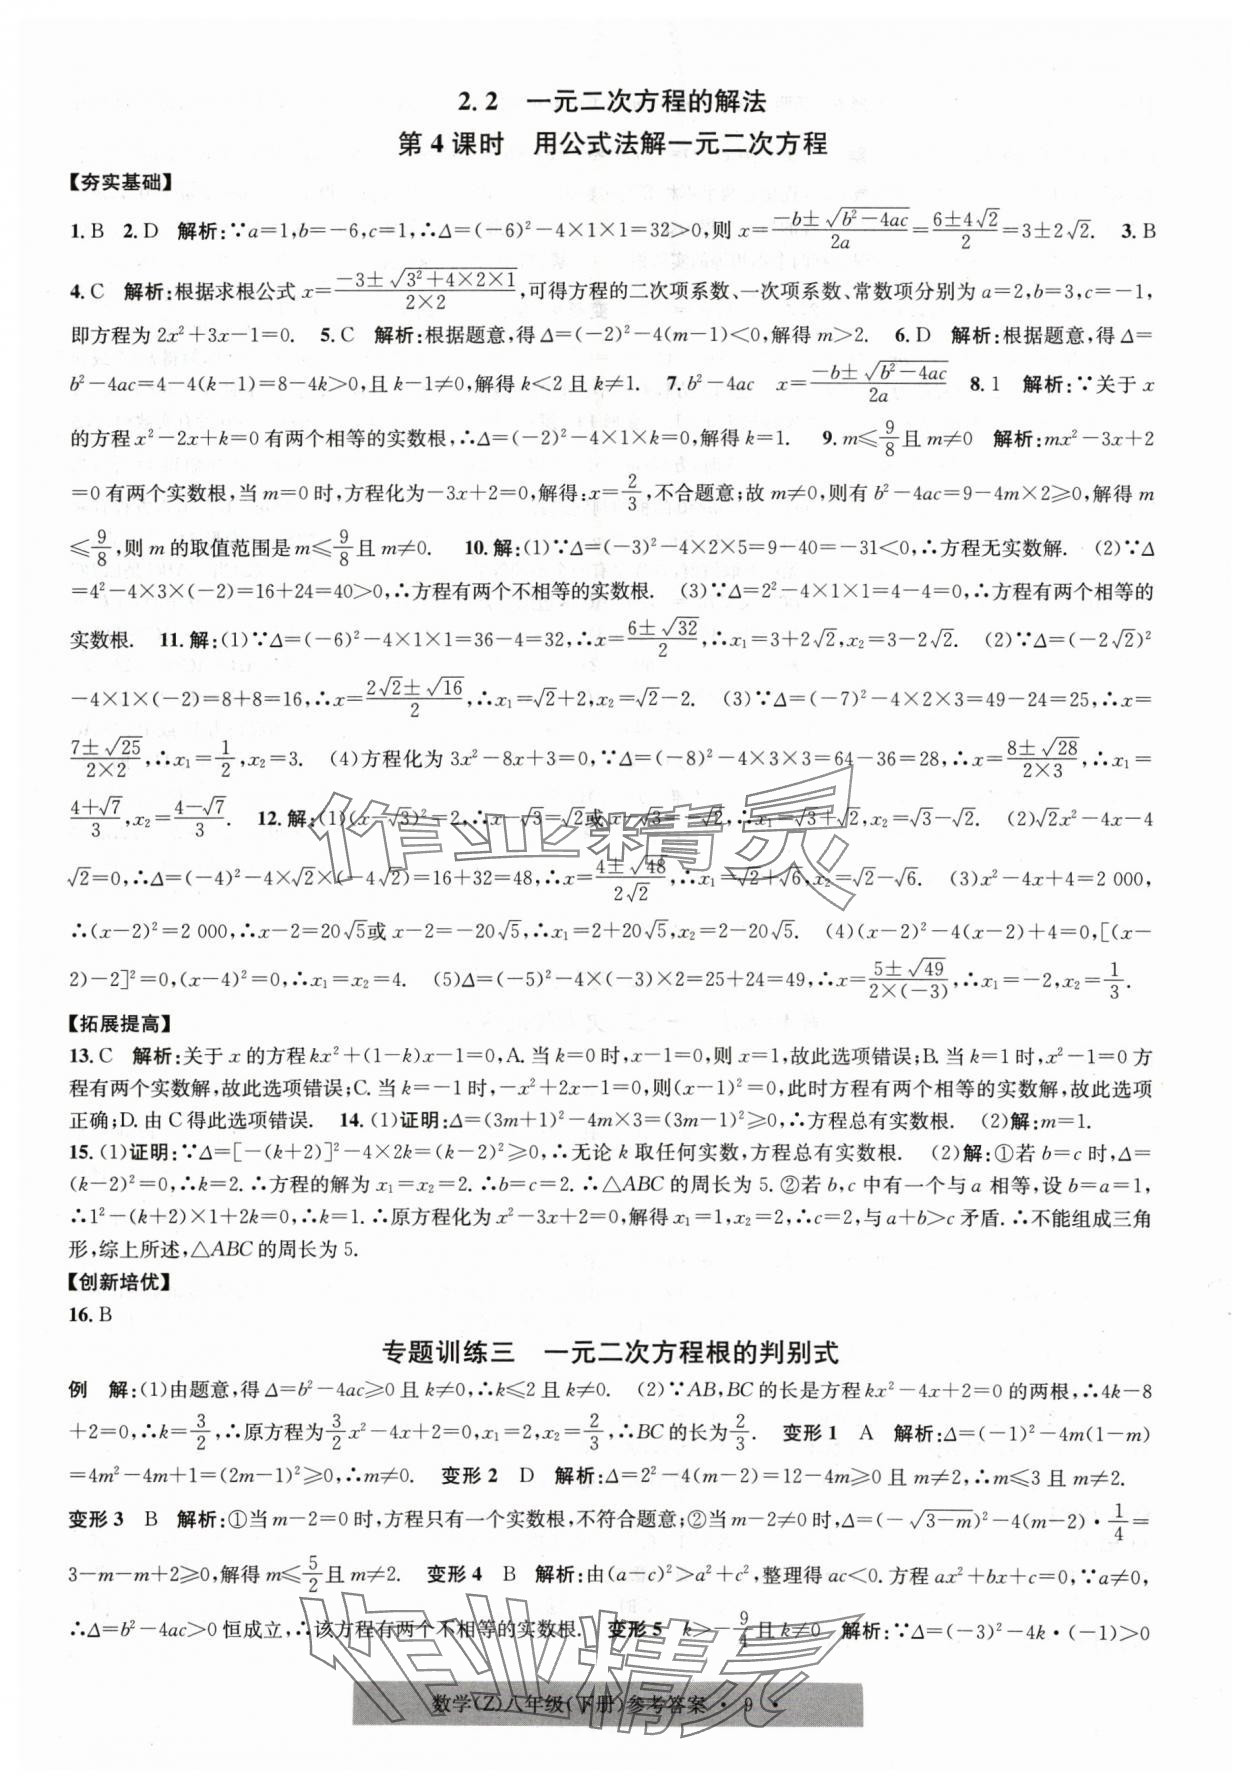 2.2　一元二次方程的解法
第4课时　用公式法解一元二次方程
【夯实基础】
1. B　2. D　解析:∵a=1,b=−6,c=1,∴Δ=(−6)²−4×1×1=32>0,则 x=(−b±√(b²−4ac))/2a=(6±4√2)/2=3±2√2.　3. B
4. C　解析:根据求根公式 x=(−3±√(3²+4×2×1))/(2×2),可得方程的二次项系数、一次项系数、常数项分别为 a=2,b=3,c=−1,
即方程为 2x²+3x−1=0.　5. C　解析:根据题意,得 Δ=(−2)²−4(m−1)<0,解得 m>2.　6. D　解析:根据题意,得 Δ=
b²−4ac=4−4(k−1)=8−4k>0,且 k−1≠0,解得 k<2 且 k≠1.　7. b²−4ac　x=(−b±√(b²−4ac))/2a　8. 1　解析:∵关于 x
的方程 x²−2x+k=0 有两个相等的实数根,∴Δ=(−2)²−4×1×k=0,解得 k=1.　9. m≤9/8且 m≠0　解析:mx²−3x+2
=0 有两个实数根,当 m=0 时,方程化为−3x+2=0,解得:x=2/3,不合题意;故 m≠0,则有 b²−4ac=9−4m×2≥0,解得 m
≤9/8,则 m 的取值范围是 m≤9/8且 m≠0.　10. 解:(1)∵Δ=(−3)²−4×2×5=9−40=−31<0,∴方程无实数解.　(2)∵Δ
=4²−4×3×(−2)=16+24=40>0,∴方程有两个不相等的实数根.　(3)∵Δ=2²−4×1×1=4−4=0,∴方程有两个相等的
实数根.　11. 解:(1)∵Δ=(−6)²−4×1×1=36−4=32,∴x=(6±√32)/2,∴x₁=3+2√2,x₂=3−2√2.　(2)∵Δ=(−2√2)²
−4×1×(−2)=8+8=16,∴x=(2√2±√16)/2,∴x₁=√2+2,x₂=√2−2.　(3)∵Δ=(−7)²−4×2×3=49−24=25,∴x=
(7±√25)/(2×2),∴x₁=1/2,x₂=3.　(4)方程化为 3x²−8x+3=0,∵Δ=(−8)²−4×3×3=64−36=28,∴x=(8±√28)/(2×3),∴x₁=
(4+√7)/3,x₂=(4−√7)/3.　12. 解:(1)(x−√3)²=2,∴x−√3=√2或 x−√3=−√2,∴x₁=√3+√2,x₂=√3−√2.　(2)√2x²−4x−4
√2=0,∴Δ=(−4)²−4×√2×(−4√2)=16+32=48,∴x=(4±√48)/(2√2),∴x₁=√2+√6,x₂=√2−√6.　(3)x²−4x+4=2 000,
∴(x−2)²=2 000,∴x−2=20√5或 x−2=−20√5,∴x₁=2+20√5,x₂=2−20√5.　(4)(x−2)²−4(x−2)+4=0,[(x−
2)−2]²=0,(x−4)²=0,∴x₁=x₂=4.　(5)Δ=(−5)²−4×(−3)×2=25+24=49,∴x=(5±√49)/(2×(−3)),∴x₁=−2,x₂=1/3.
【拓展提高】
13. C　解析:关于 x 的方程 kx²+(1−k)x−1=0,A. 当 k=0 时,x−1=0,则 x=1,故此选项错误;B. 当 k=1 时,x²−1=0 方
程有两个实数解,故此选项错误;C. 当 k=−1 时,−x²+2x−1=0,则(x−1)²=0,此时方程有两个相等的实数解,故此选项
正确;D. 由 C 得此选项错误.　14. (1)证明:Δ=(3m+1)²−4m×3=(3m−1)²≥0,∴方程总有实数根.　(2)解:m=1.
15. (1)证明:∵Δ=[−(k+2)]²−4×2k=(k−2)²≥0,∴无论 k 取任何实数,方程总有实数根.　(2)解:①若 b=c 时,Δ=
(k−2)²=0,∴k=2.∴方程的解为 x₁=x₂=2.∴b=c=2.∴△ABC 的周长为 5. ②若 b,c 中有一个与 a 相等,设 b=a=1,
∴1²−(k+2)×1+2k=0,∴k=1.∴原方程化为 x²−3x+2=0,解得 x₁=1,x₂=2,∴c=2,与 a+b>c 矛盾.∴不能组成三角
形,综上所述,△ABC 的周长为 5.
【创新培优】
16. B
专题训练三　一元二次方程根的判别式
例　解:(1)由题意,得 Δ=b²−4ac≥0 且 k≠0,∴k≤2 且 k≠0.　(2)∵AB,BC 的长是方程 kx²−4x+2=0 的两根,∴4k−8
+2=0,∴k=3/2,∴原方程为3/2x²−4x+2=0,x₁=2,x₂=2/3,∴BC 的长为2/3.　变形 1　A　解析:Δ=(−1)²−4m(1−m)
=4m²−4m+1=(2m−1)²≥0,∴m≠0.　变形 2　D　解析:Δ=2²−4(m−2)=12−4m≥0 且 m≠2,∴m≤3 且 m≠2.
变形 3　B　解析:①当 m−2=0 时,方程只有一个实数根,不符合题意;②当 m−2≠0 时,Δ=(−√(3−m))²−4(m−2)·1/4=
3−m−m+2≥0,解得 m≤5/2且 m≠2.　变形 4　B　解析:由(a−c)²>a²+c²,整理得 ac<0. 方程 ax²+bx+c=0,∵a≠0,
∴Δ=b²−4ac>0 恒成立,∴该方程有两个不相等的实数根.　变形 5　k>−9/4且 k≠0　解析:∵Δ=(−3)²−4k·(−1)>0
数学(Z)八年级(下册)参考答案 · 9 ·
作业精灵
作业精灵